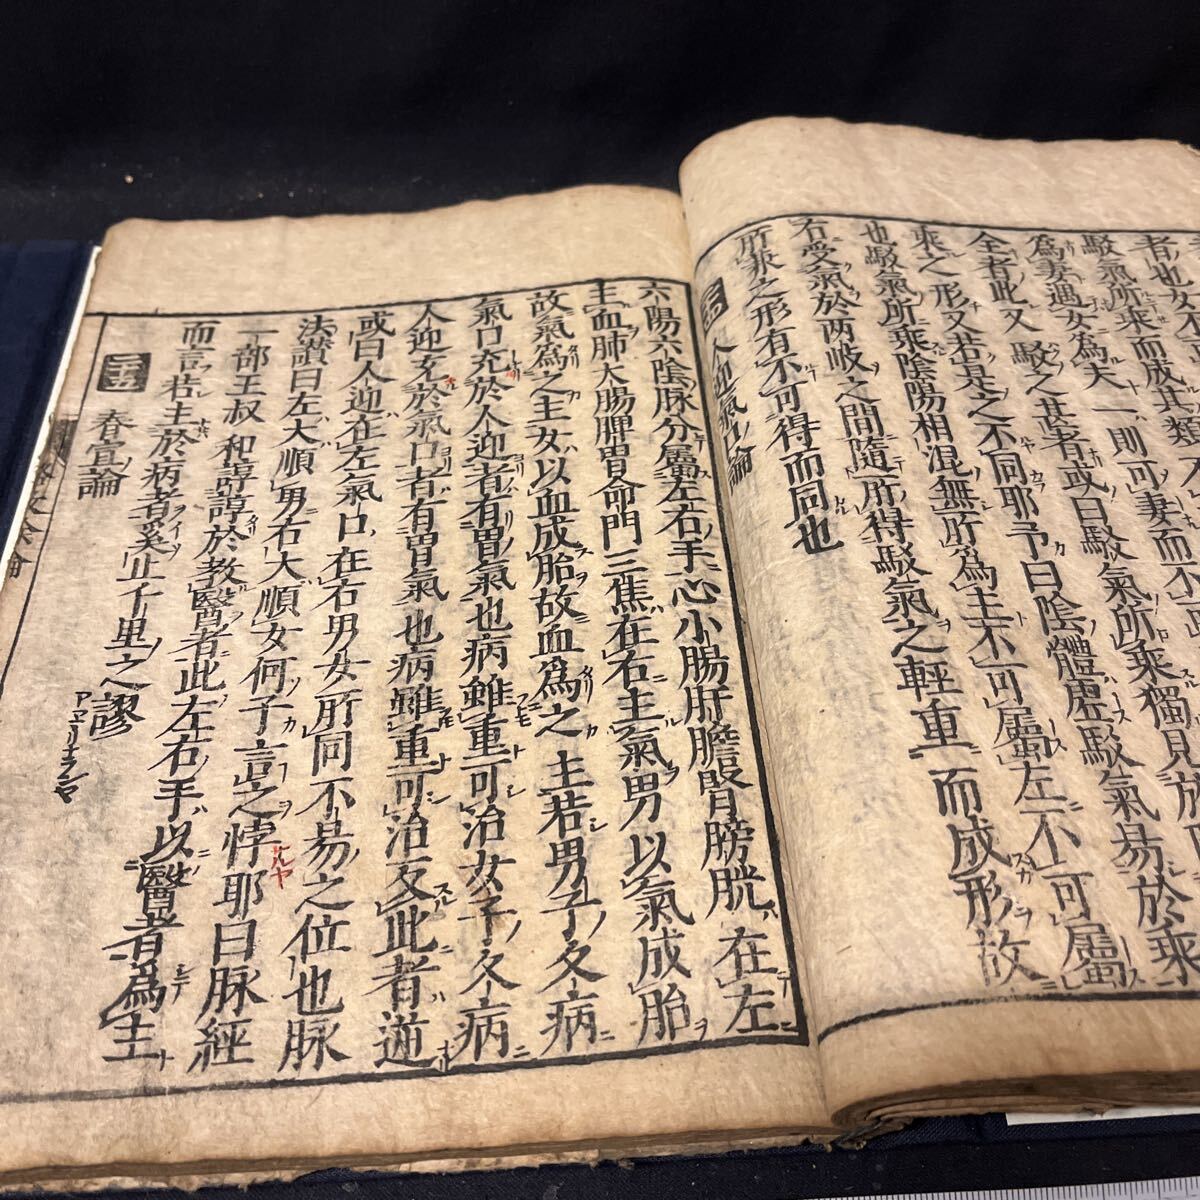 者也
駁氣所乘而成其類不
為妻遇女為夫一則可妻而不
全者此又駁之甚者或曰駁氣所乘獨見於
乘之形又若是之不同耶予曰陰體虛駁氣易於乘
也駁氣所乘陰陽相混無所為主不可屬左不可屬
右受氣於两岐之間隨所得駁氣之輕重而成形故
所乘之形有不可得而同也
人迎氣口論
六陽六陰脉分屬左右手心小腸肝膽腎膀胱在左
主血肺大腸脾胃命門三焦在右主氣男以氣成胎
故氣為之主女以血成胎故血為之主若男子久病
氣口充於人迎者有胃氣也病雖重可治女子久病
人迎充於氣口者有胃氣也病雖重可治反此者逆
或曰人迎在左氣口在右男女所同不易之位也脉
法讃曰左大順男右大順女何子言之悖耶曰脉經
一部王叔和諄諄於教醫者此左右手以醫者為主
而言若主於病者奚止千里之謬
二十五
春宣論